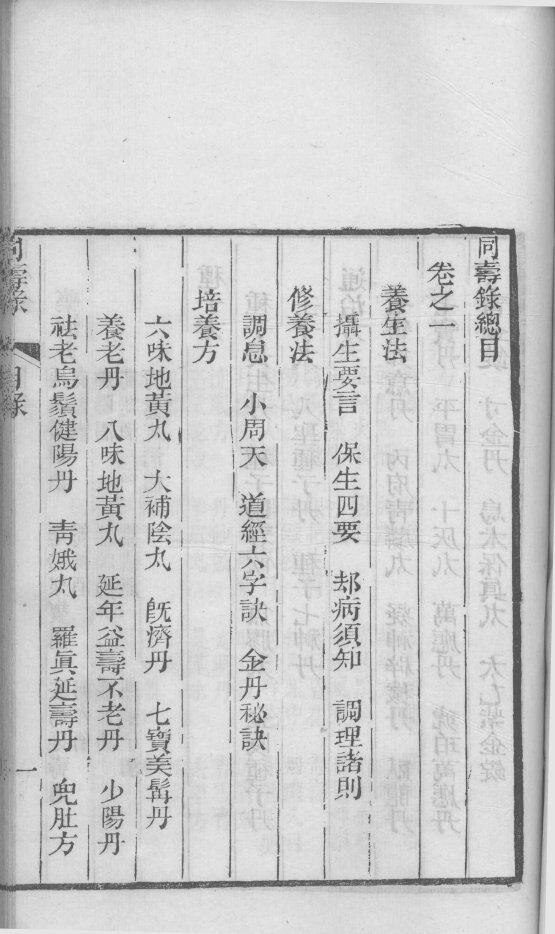 同壽錄總目
卷之一
養生法
攝生要言 保生四要 却病須知 調理諸則
修養法
調息 小周天 道經六字訣 金丹秘訣
培養方
六味地黃丸 大補陰丸 旣濟丹 七寶美髯丹
養老丹 八味地黃丸 延年益壽不老丹 少陽丹
祛老烏鬚健陽丹 青娥丸 羅眞延壽丹 兜肚方
同壽錄 目錄 一